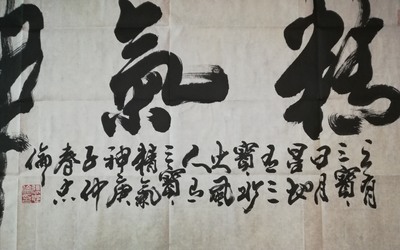 精氣
天有
三寶
日月
星地
有三
寶水
火風
人有
三寶
精氣
神庚
子仲
春
倫